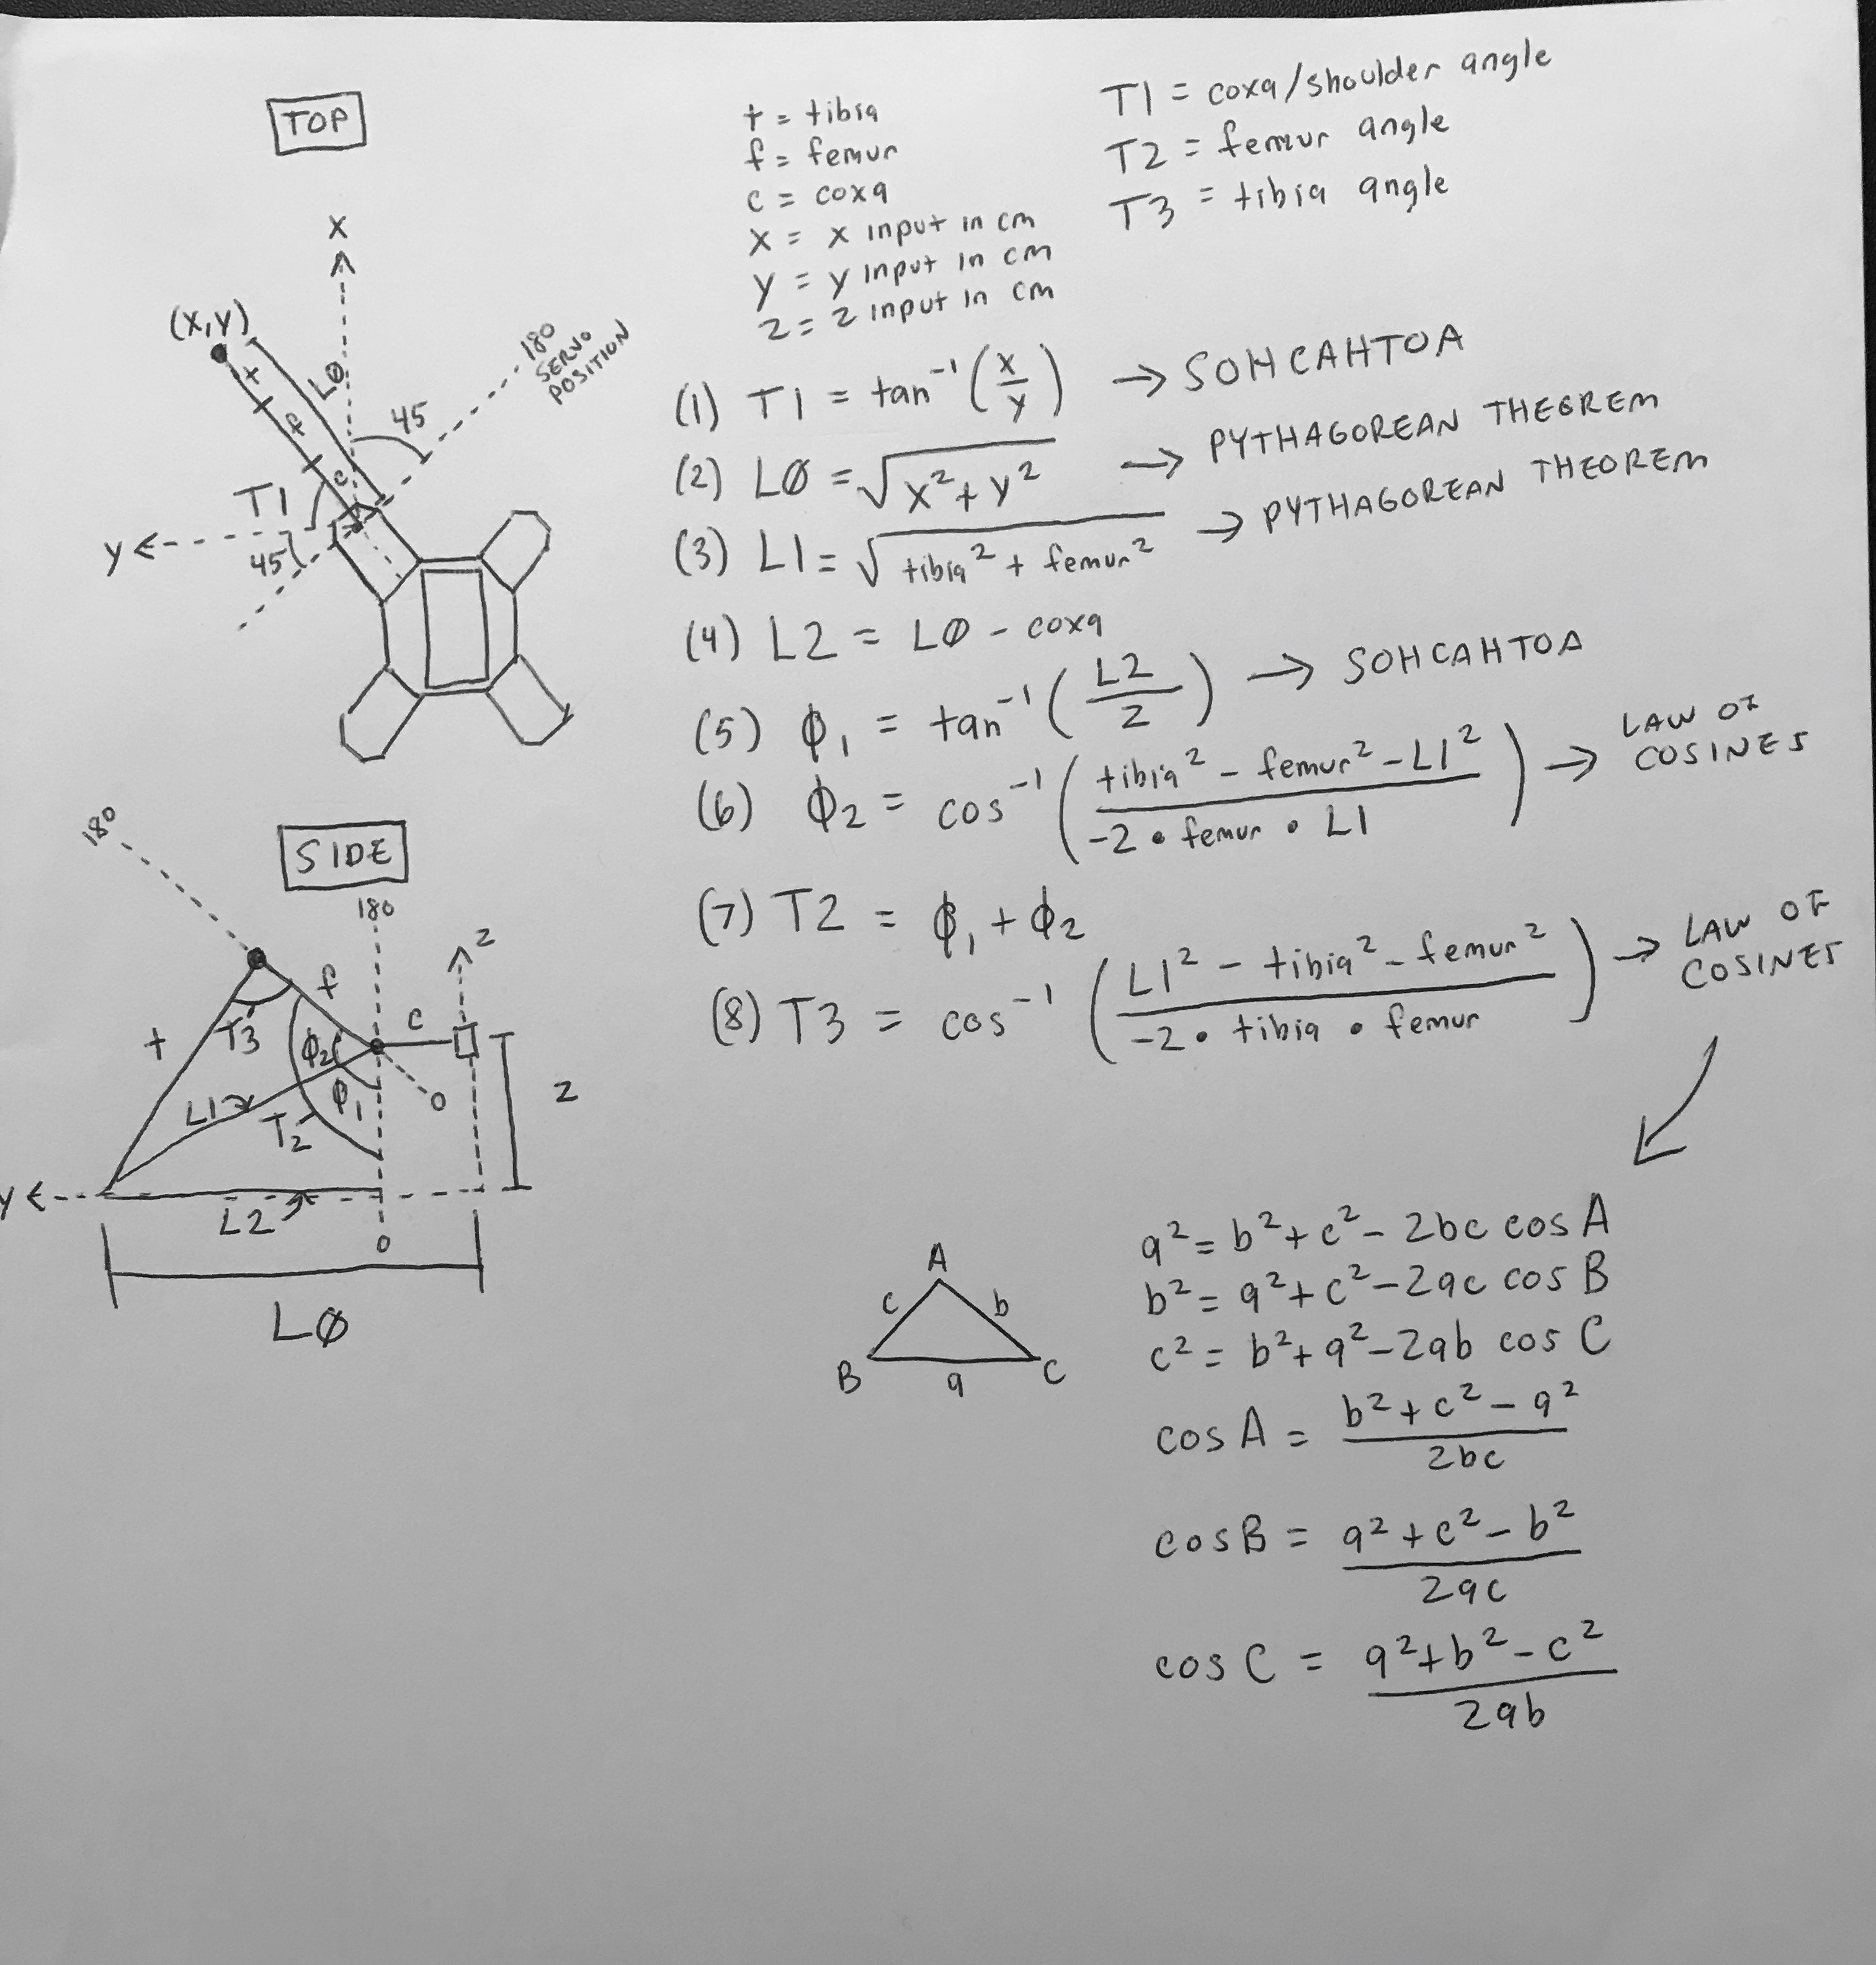 TOP
X
(X,Y)
t
LØ
f
c
45
180
SERVO
POSITION
T1
Y
45
t = tibia
f = femur
c = coxa
X = x input in cm
Y = y input in cm
Z = z input in cm
T1 = coxa/shoulder angle
T2 = femur angle
T3 = tibia angle
(1) T1 = tan⁻¹(x/y) → SOHCAHTOA
(2) LØ = √(x² + y²) → PYTHAGOREAN THEOREM
(3) L1 = √(tibia² + femur²) → PYTHAGOREAN THEOREM
(4) L2 = LØ - coxa
(5) ϕ₁ = tan⁻¹(L2/z) → SOHCAHTOA
(6) ϕ₂ = cos⁻¹((tibia² - femur² - L1²)/(-2 • femur • L1)) → LAW OF COSINES
(7) T2 = ϕ₁ + ϕ₂
(8) T3 = cos⁻¹((L1² - tibia² - femur²)/(-2 • tibia • femur)) → LAW OF COSINES
SIDE
180
180
z
f
c
t
T3
ϕ₂
ϕ₁
0
z
L1
T2
Y
L2
0
LØ
A
c
b
B
a
C
a² = b² + c² - 2bc cos A
b² = a² + c² - 2ac cos B
c² = b² + a² - 2ab cos C
cos A = (b² + c² - a²)/2bc
cos B = (a² + c² - b²)/2ac
cos C = (a² + b² - c²)/2ab